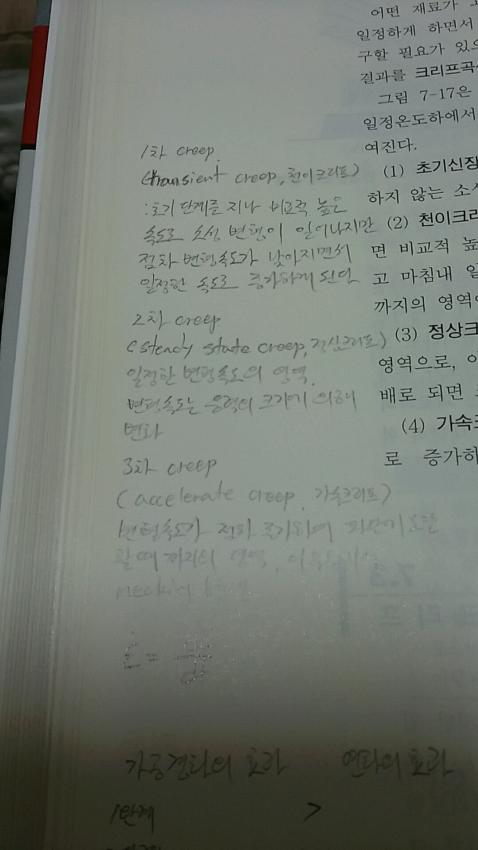 어떤 재료가
일정하게 하면서
구할 필요가 있으
결과를 크리프곡
그림 7-17은
일정온도하에서
여진다.
(1) 초기신장
하지 않는 소
(2) 천이크리
면 비교적 높
고 마침내 일
까지의 영역
(3) 정상크
영역으로, 이
배로 되면
(4) 가속
로 증가하
1차 creep
(transient creep, 천이크리프)
: 초기 단계를 지나 비교적 높은
속도로 소성 변형이 일어나지만
점차 변형속도가 낮아지면서
일정한 속도로 증가하게 된다
2차 creep
(steady state creep, 정상크리프)
일정한 변형속도의 영역.
변형속도는 응력의 크기에 의해
변화
3차 creep
(accelerate creep, 가속크리프)
변형속도가 점차 증가하여 파단에
할 때 까지의 영역,
necking
ε̇ =
가공경화의 효과 연화의 효과
1단계 >